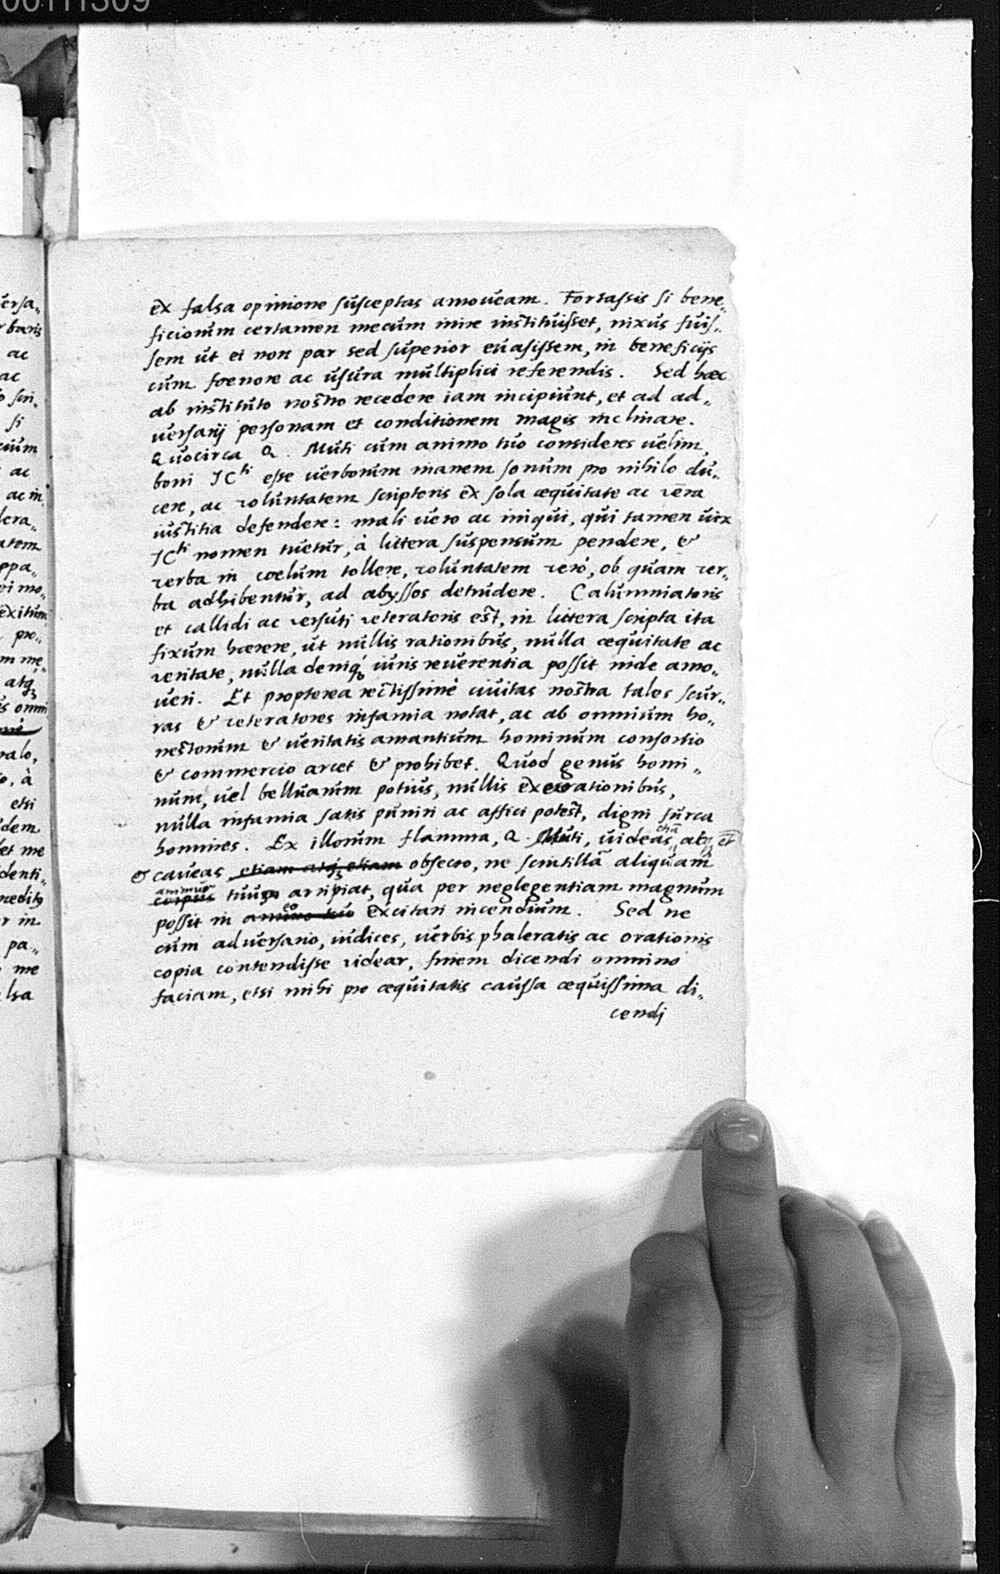 00111309
ex falsa opinione susceptas amoveam. Fortassis si bene„
ficiorum certamen mecum inire instituisset, nixus fuis„
sem ut ei non par sed superior evasissem, in beneficijs
cum foenore ac usura multiplici referendis. Sed haec
ab instituto nostro recedere iam incipiunt, et ad ad„
versarij personam et conditionem magis inclinare.
Quocirca Q. Muti cum animo tuo consideres velim,
boni JCti esse verborum inanem sonum pro nihilo du„
cere, ac voluntatem scriptoris ex sola aequitate ac vera
iustitia defendere: mali vero ac iniqui, qui tamen vix
JCti nomen tuetur, à littera suspensum pendere, &
verba in coelum tollere, voluntatem verò, ob quam ver„
ba adhibentur, ad abyssos detrudere. Calumniatoris
et callidi ac versuti veteratoris est, in littera scripta ita
fixum haerere, ut nullis rationibus, nulla aequitate ac
veritate, nulla deniq; iuris reverentia possit inde amo„
veri. Et propterea rectissimè civitas nostra tales scur„
ras & veteratores infamia notat, ac ab omnium ho„
nestorum & veritatis amantium hominum consortio
& commercio arcet & prohibet. Quod genus homi„
num, vel belluarum potius, nullis execrationibus,
nulla infamia satis puniri ac affici potest, digni furca
homines. Ex illorum flamma, Q. Muti, videas,
& caveas etiam atq; etiam obsecro, ne scintilla aliquam
animum
corpus tuum arripiat, qua per neglegentiam magnum
possit in animo tuo eo excitari incendium. Sed ne
cum adversario, iudices, verbis phaleratis ac orationis
copia contendisse videar, finem dicendi omnino
faciam, etsi mihi pro aequitatis caussa aequissima di„
cendi